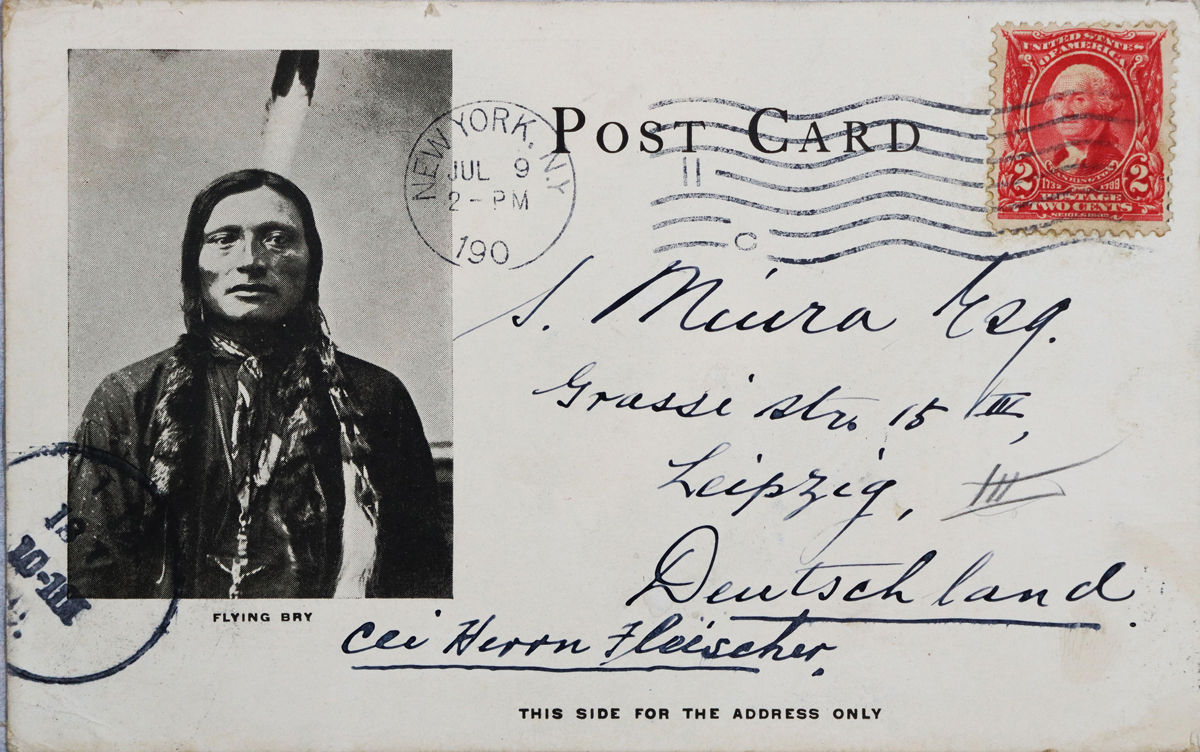 POST CARD
NEW YORK, N.Y.
JUL 9
2 - PM
190
11
C
UNITED STATES
OF AMERICA
WASHINGTON
1732 1799
2 2
POSTAGE
TWO CENTS
SERIES 1902
S. Miura Esq.
Grassi str. 15 III,
Leipzig, III
Deutschland.
cei Herrn Fleischer,
FLYING BRY
THIS SIDE FOR THE ADDRESS ONLY